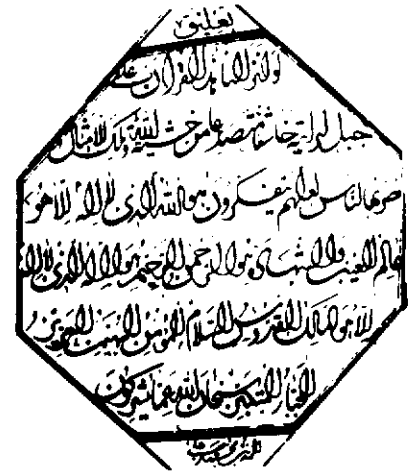 تعليق
لو انزلنا هذا القران على
جبل لرايته خاشعا متصدعا من خشية الله وتلك الامثال
نضربها للناس لعلهم يتفكرون هو الله الذي لا اله الا هو
عالم الغيب والشهادة هو الرحمن الرحيم هو الله الذي لا اله
الا هو الملك القدوس السلام المؤمن المهيمن العزيز
الجبار المتكبر سبحان الله عما يشركون